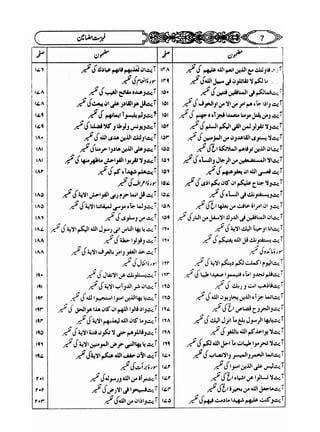 7
فہرست مضامین
مضمون
صفحہ
مضمون
صفحہ
آیت فاولئک مع الذین انعم اللہ علیہم کی تفسیر ۱۳۸
مالکم لا تقاتلون فی سبیل اللہ کی تفسیر ۱۳۹
آیت فمالکم فی المنافقین فئتین کی تفسیر ۱۵۰
آیت واذا جاءہم امر من الامن او الخوف کی تفسیر ۱۵۱
آیت ومن یقتل مومنا متعمدا فجزاؤہ جہنم کی تفسیر
آیت ولا تقولو لمن القی الیکم السلم کی تفسیر ۱۵۲
آیت لا یستوی القاعدون من المؤمنین کی تفسیر ۱۵۳
آیت ان الذین توفاہم الملائکۃ الخ کی تفسیر
آیت الا المستضعفین من الرجال والنساء کی تفسیر
آیت فعسی اللہ ان یعفو عنہم کی تفسیر
آیت لا جناح علیکم ان کان بکم اذی کی تفسیر
آیت یستفتونک فی النساء کی تفسیر
آیت وان امراۃ خافت من بعلہا الخ کی تفسیر
آیت ان المنافقین فی الدرک الاسفل من النار کی تفسیر
آیت انا اوحینا الیک الایۃ کی تفسیر
آیت یستفتونک قل اللہ یفتیکم کی تفسیر
سورۃ مائدہ کی تفسیر
آیت الیوم اکملت لکم دینکم الایۃ کی تفسیر
آیت فلم تجدوا ماء فتیمموا صعیدا طیبا کی تفسیر
آیت فاذہب انت و ربک کی تفسیر
آیت انما جزاء الذین یحاربون اللہ کی تفسیر
آیت والجروح قصاص الخ کی تفسیر
آیت یایہا الرسول بلغ ما انزل الیک کی تفسیر
آیت لا یؤاخذکم اللہ باللغو کی تفسیر
آیت لا تحرموا طیبات ما احل اللہ لکم کی تفسیر
آیت انما الخمر والمیسر والانصاب کی تفسیر ۱۷۰
آیت لیس علی الذین امنوا کی تفسیر ۱۷۲
آیت لا تسالوا عن اشیاء الخ کی تفسیر ۱۷۳
آیت ماجعل اللہ من بحیرۃ الخ کی تفسیر
آیت وکنت علیہم شہیدا ما دمت فیہم کی تفسیر ۱۷۵
آیت ان تعذبہم فانہم عبادک کی تفسیر ۱۷۶
سورۃ انعام کی تفسیر
آیت وعندہ مفاتح الغیب کی تفسیر ۱۷۸
آیت قل ہو القادر علی ان یبعث کی تفسیر ۱۷۸
آیت ولم یلبسوا ایمانہم کی تفسیر
آیت ویونس ولوطا و کلا فضلنا کی تفسیر
آیت اولئک الذین ہدی اللہ کی تفسیر ۱۸۰
آیت وعلی الذین ہادوا حرمنا کی تفسیر ۱۸۱
آیت ولا تقربوا الفواحش ماظہر منہا کی تفسیر ۱۸۱
آیت ہلم شہداءکم کی تفسیر ۱۸۲
سورۃ اعراف کی تفسیر
آیت قل انما حرم ربی الفواحش الایۃ کی تفسیر ۱۸۵
آیت ولما جاء موسی لمیقاتنا الایۃ کی تفسیر ۱۸۵
آیت من وسلوی کی تفسیر
آیت یایہا الناس انی رسول اللہ الیکم الایۃ کی تفسیر
آیت وقولوا حطۃ کی تفسیر ۱۸۸
آیت خذ العفو وامر بالعرف الایۃ کی تفسیر ۱۸۸
سورۃ انفال کی تفسیر
آیت یسئلونک عن الانفال کی تفسیر ۱۹۰
آیت ان شر الدواب الایۃ کی تفسیر ۱۹۱
آیت یایہا الذین امنوا استجیبوا للہ کی تفسیر
آیت واذ قالوا اللہم ان کان ہذا ہو الحق کی تفسیر
آیت وما کان اللہ لیعذبہم الایۃ کی تفسیر
آیت وقاتلوہم حتی لا تکون فتنۃ الایۃ کی تفسیر
آیت یایہا النبی حرض المومنین الایۃ کی تفسیر
آیت الآن خفف اللہ عنکم الایۃ کی تفسیر ۱۹۷
سورۃ براءت کی تفسیر
آیت براءۃ من اللہ ورسولہ کی تفسیر ۲۰۱
آیت فسیحوا فی الارض کی تفسیر ۲۰۲
آیت واذان من اللہ کی تفسیر ۲۰۳